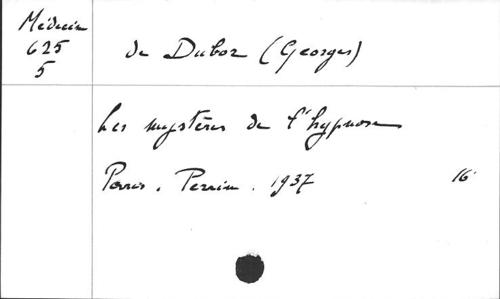 Médecin
625
5
de Dubor (Georges)
Les mystères de l'hypnose
Paris. Perrin. 1937 16